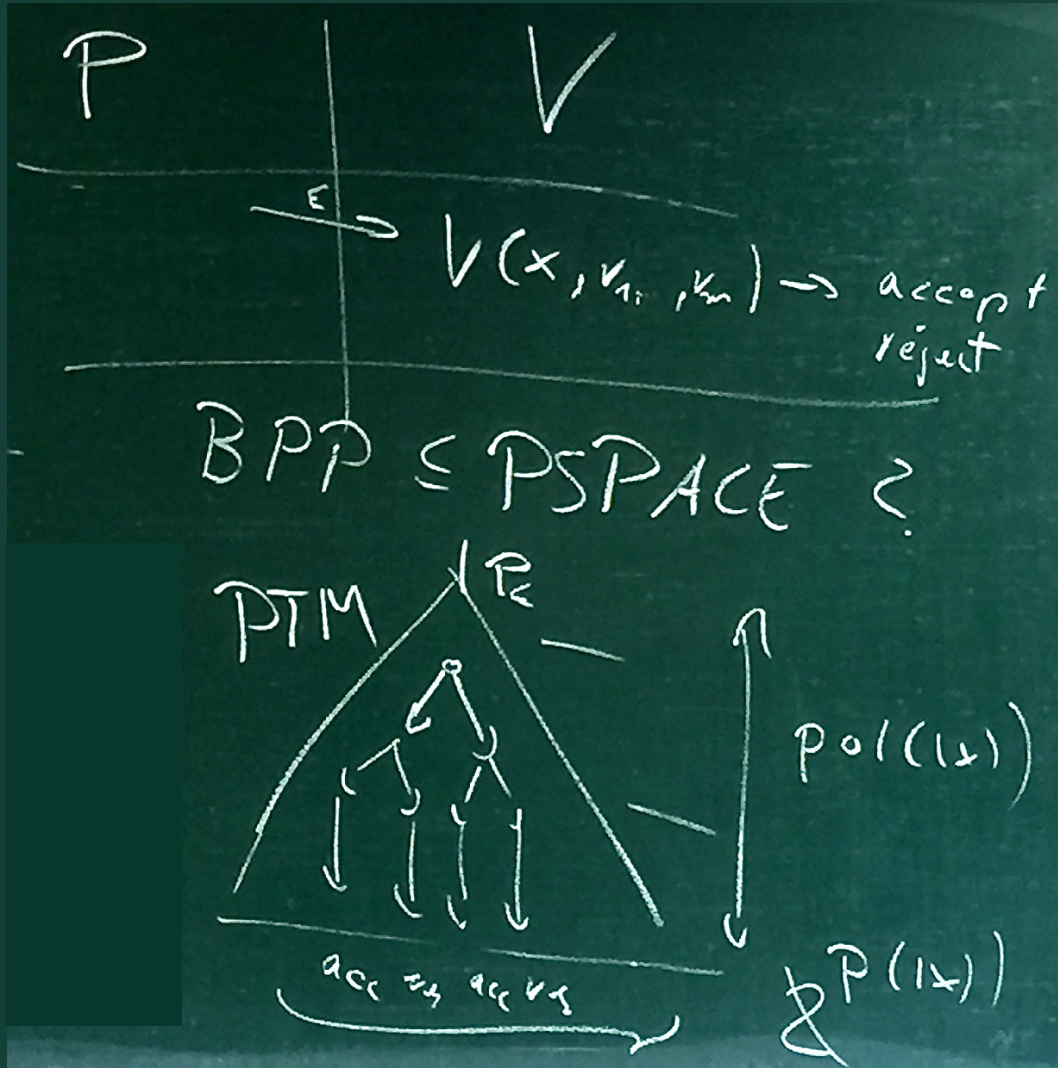 P V
ε
V(x, v₁, .. , vₘ) → accept
reject
BPP ⊆ PSPACE ?
PTM
pol(|x|)
acc rej acc rej
2^P(|x|)